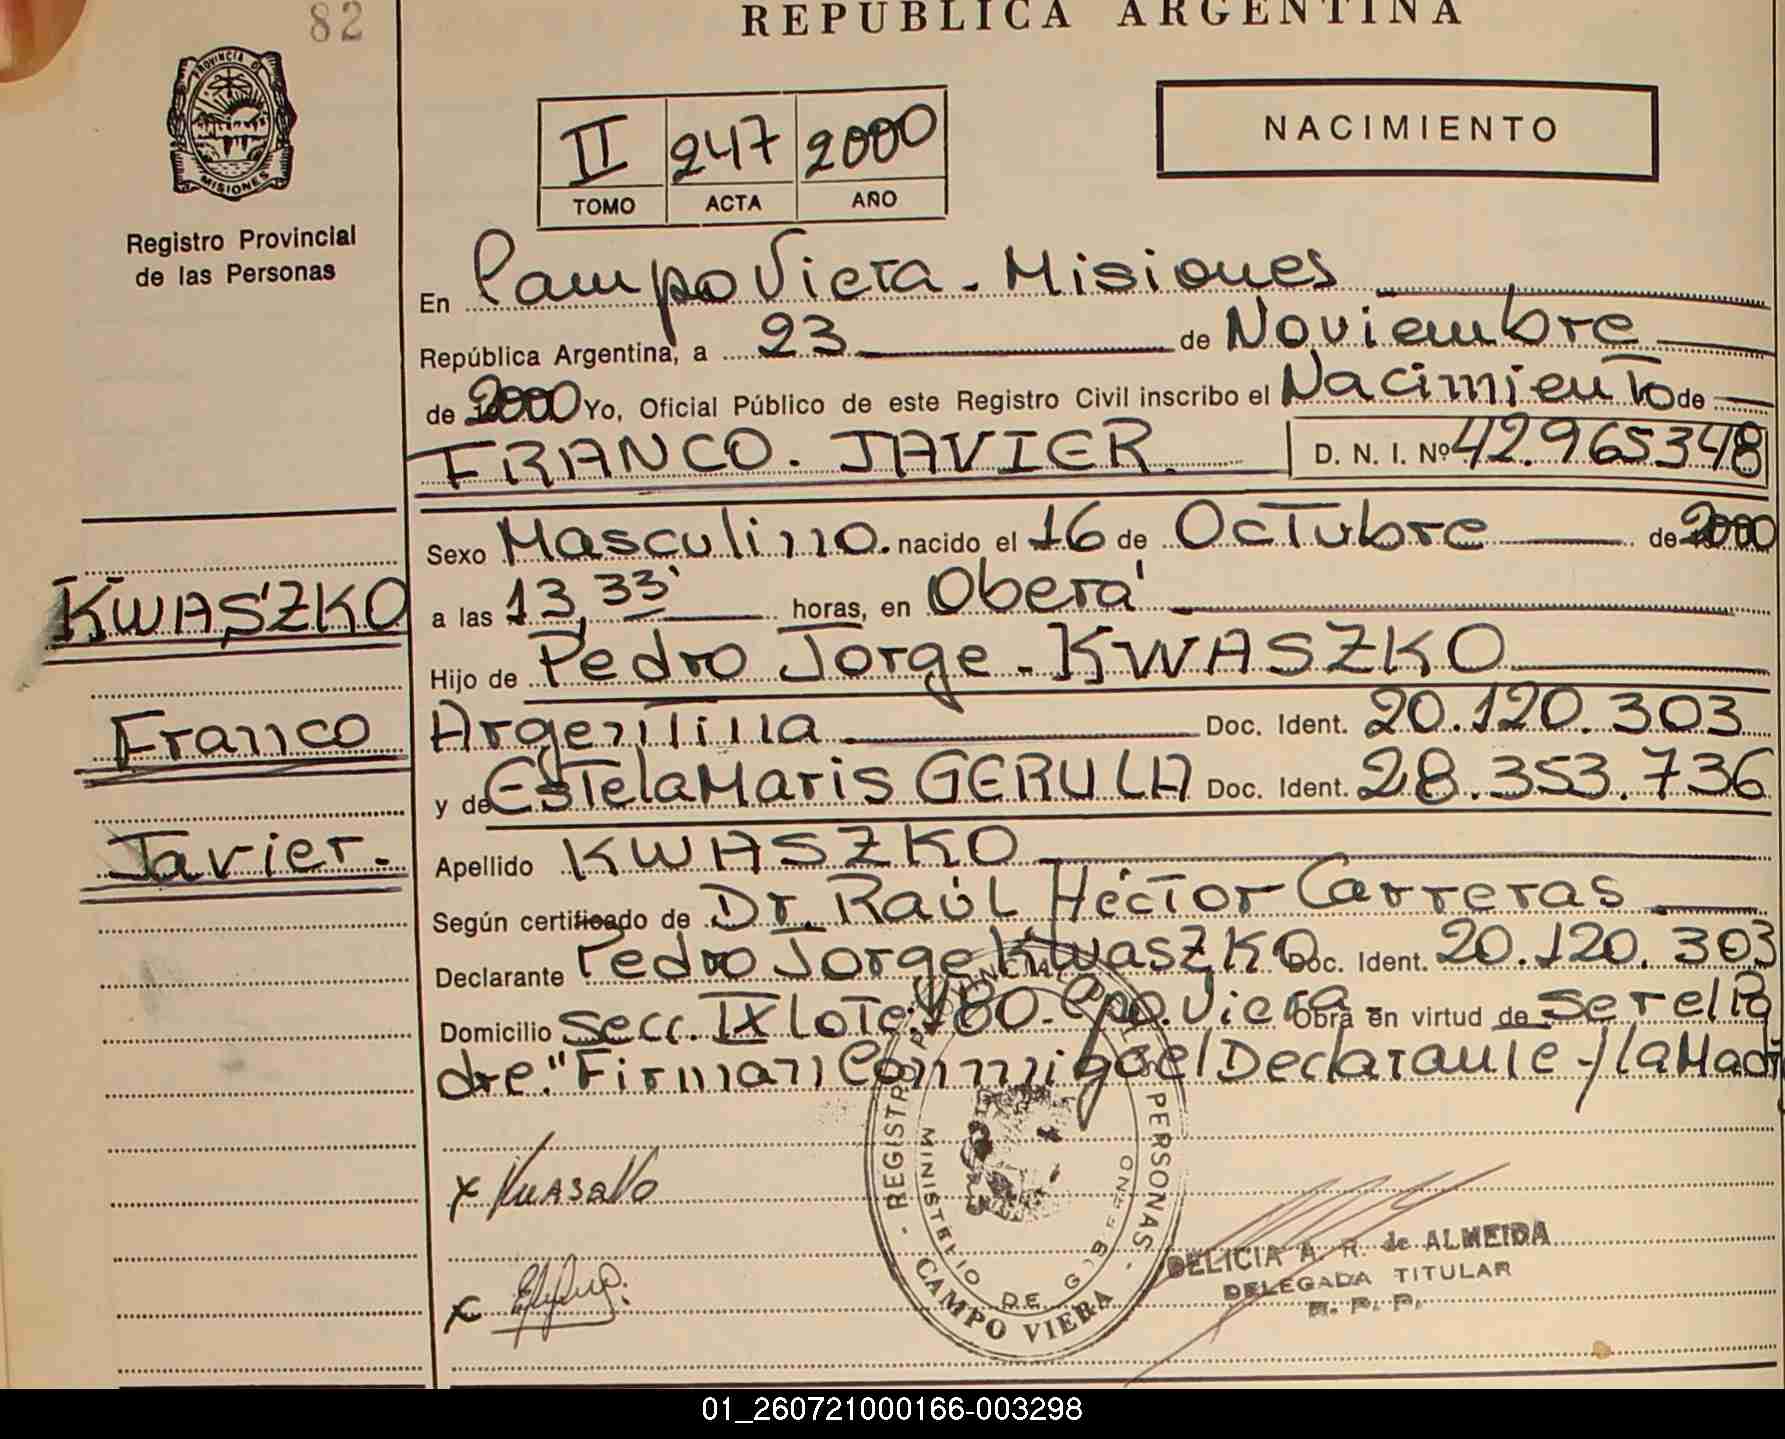 82
REPUBLICA ARGENTINA
PROVINCIA DE
MISIONES
Registro Provincial
de las Personas
II 247 2000
TOMO ACTA AÑO
NACIMIENTO
En Campo Viera - Misiones
República Argentina, a 23 de Noviembre
de 2000 Yo, Oficial Público de este Registro Civil inscribo el Nacimiento de
FRANCO. JAVIER. D. N. I. Nº 42.965348
Sexo Masculino. nacido el 16 de Octubre de 2000
a las 13,33' horas, en Oberá
Hijo de Pedro Jorge - KWASZKO
Argentina Doc. Ident. 20.120.303
y de Estela Maris GERULA Doc. Ident. 28.353.736
Apellido KWASZKO
Según certificado de Dr. Raúl Héctor Carreras
Declarante Pedro Jorge Kwaszko Doc. Ident. 20.120.303
Domicilio secc. IX Lote 180 - Cpo. Viera Obra en virtud de ser el Pa
dre." Firman Conmigo el Declarante - y la Madr
KWASZKO
Franco
Javier.
REGISTRO PROVINCIAL DE LAS PERSONAS
MINISTERIO DE GOBIERNO
CAMPO VIERA
DELICIA A. R. de ALMEIDA
DELEGADA TITULAR
R. P. P.
01_260721000166-003298